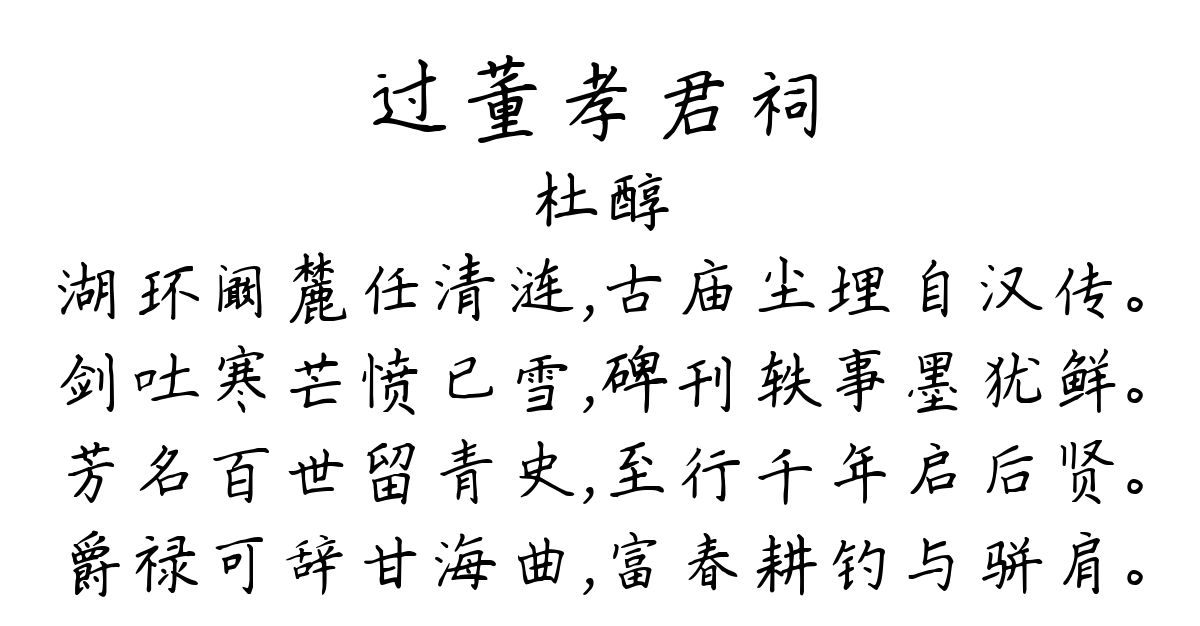 过董孝君祠
杜醇
湖环阚麓任清涟,古庙尘埋自汉传。
剑吐寒芒愤已雪,碑刊轶事墨犹鲜。
芳名百世留青史,至行千年启后贤。
爵禄可辞甘海曲,富春耕钓与骈肩。